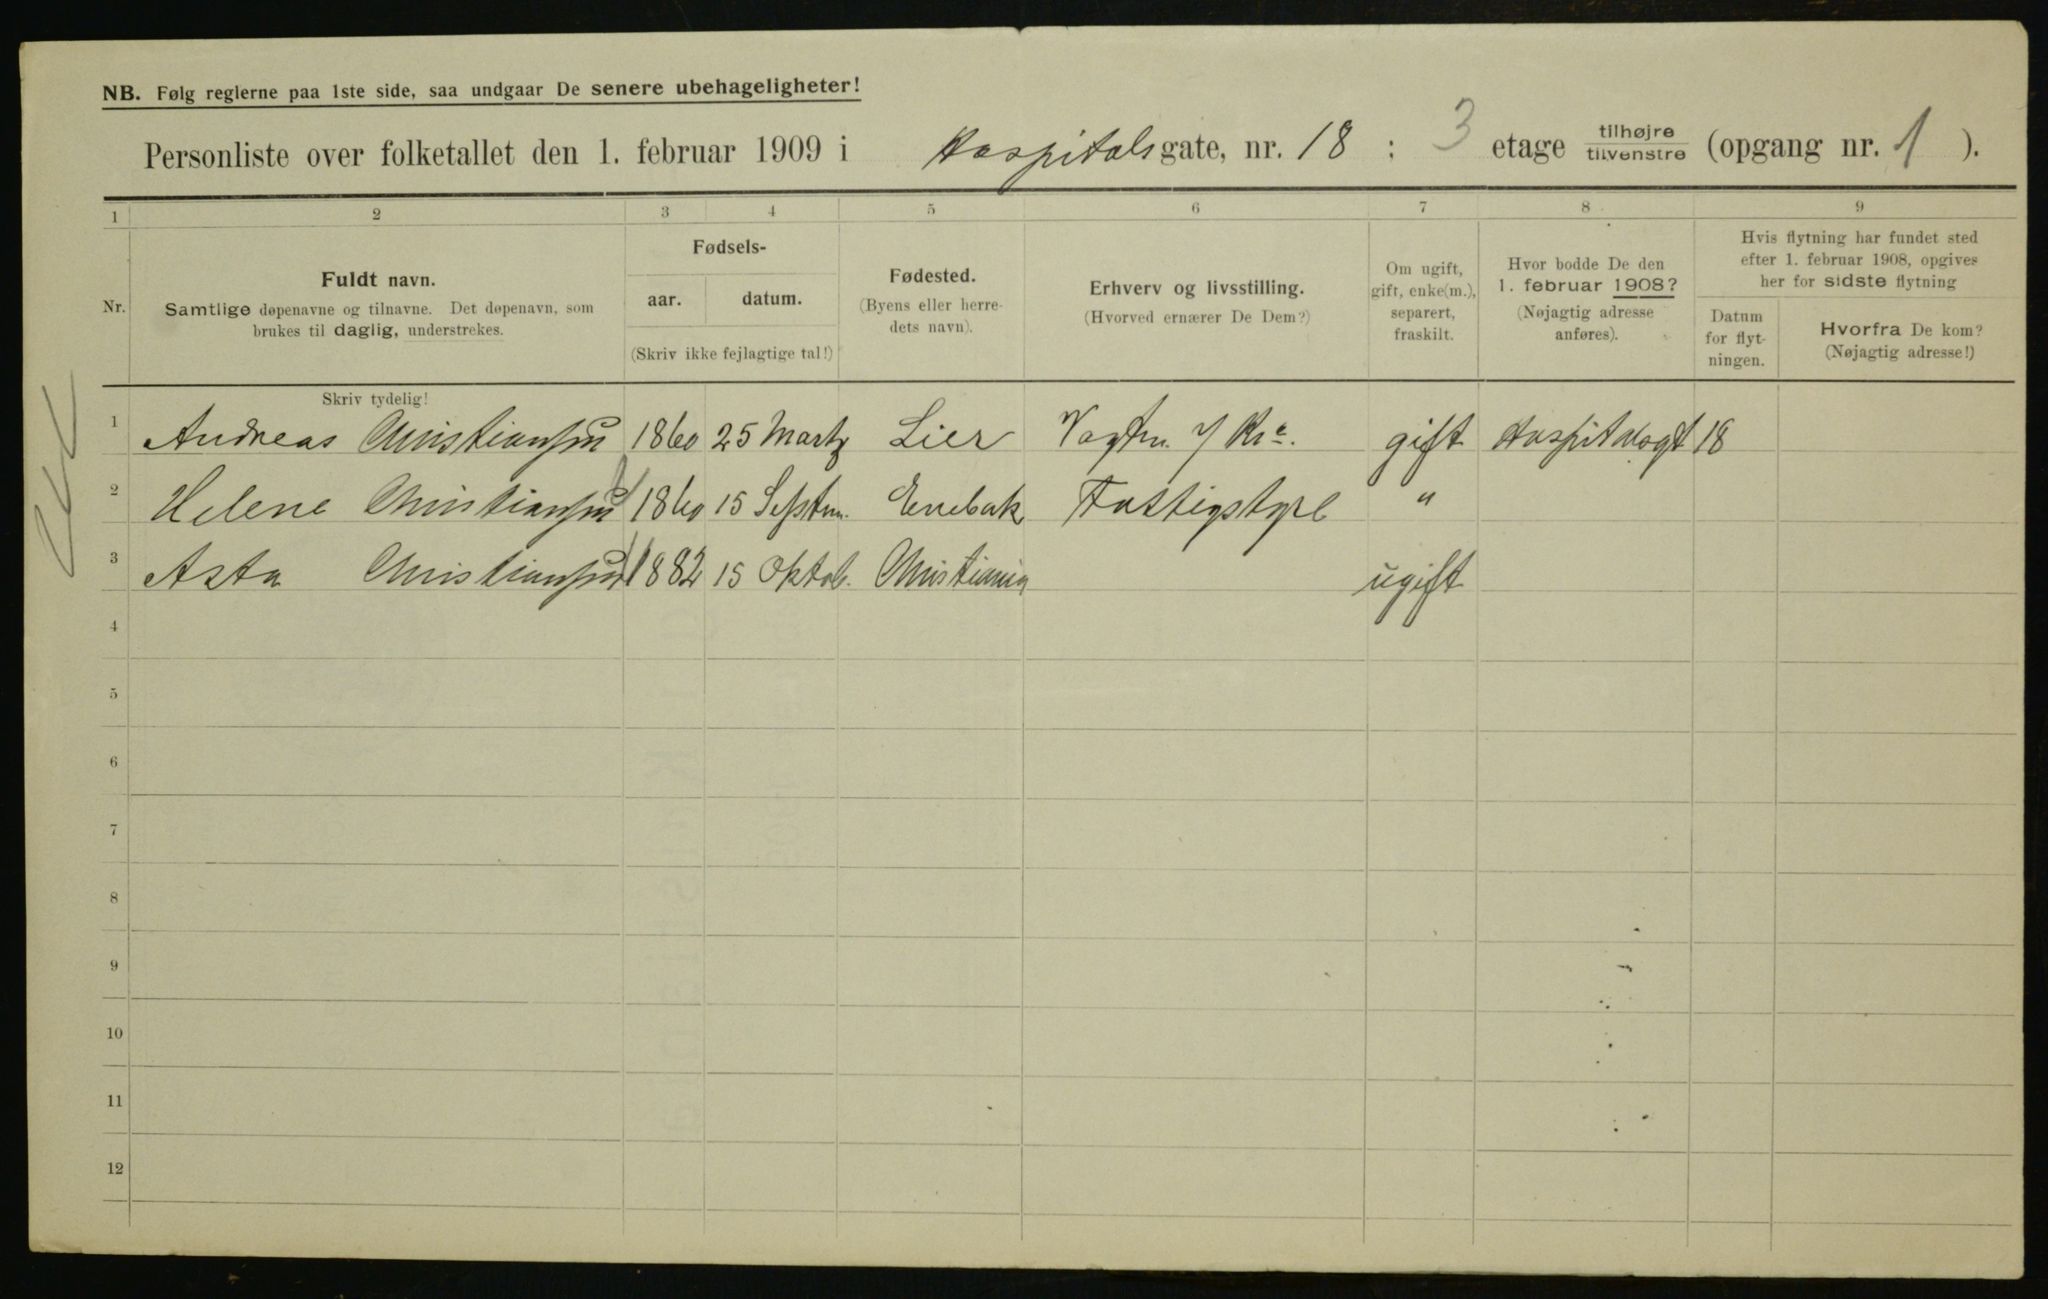 NB. Følg reglerne paa 1ste side, saa undgaar De senere ubehageligheter!
Personliste over folketallet den 1. februar 1909 i Hospitals gate, nr. 18 ; 3 etage tilhøjre tilvenstre (opgang nr. 1 ).
1 2 3 4 5 6 7 8 9
Nr.
Fuldt navn.
Samtlige døpenavne og tilnavne. Det døpenavn, som
brukes til daglig, understrekes.
Fødsels-
aar. datum.
(Skriv ikke fejlagtige tal!)
Fødested.
(Byens eller herre-
dets navn).
Erhverv og livsstilling.
(Hvorved ernærer De Dem?)
Om ugift,
gift, enke(m.),
separert,
fraskilt.
Hvor bodde De den
1. februar 1908?
(Nøjagtig adresse
anføres).
Hvis flytning har fundet sted
efter 1. februar 1908, opgives
her for sidste flytning
Datum
for flyt-
ningen.
Hvorfra De kom?
(Nøjagtig adresse!)
Skriv tydelig!
1 Andreas Christiansen 1860 25 Martz Lier gift Hospitalsgt 18
2 Helene Christiansen 1860 15 Septm. Enebak Fattigstyre "
3 Asta Christiansen 1882 15 Oktob. Christiania ugift
4
5
6
7
8
9
10
11
12